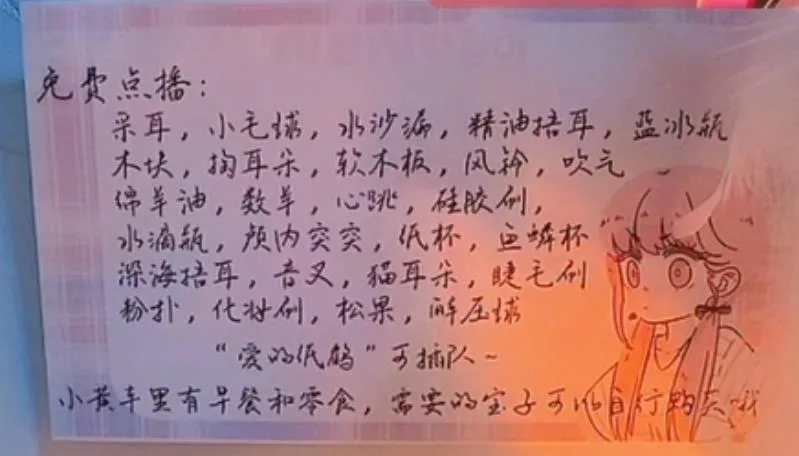 免费点播:
采耳,小毛球,水沙漏,精油捂耳,蓝冰瓶
木块,掏耳朵,软木板,风铃,吹气
绵羊油,数羊,心跳,硅胶刷,
水滴瓶,颅内突突,纸杯,鱼鳞杯
深海捂耳,音叉,猫耳朵,睫毛刷
粉扑,化妆刷,松果,解压球
“爱的纸鹤”可插队~
小黄车里有早餐和零食,需要的宝子可以自行购买